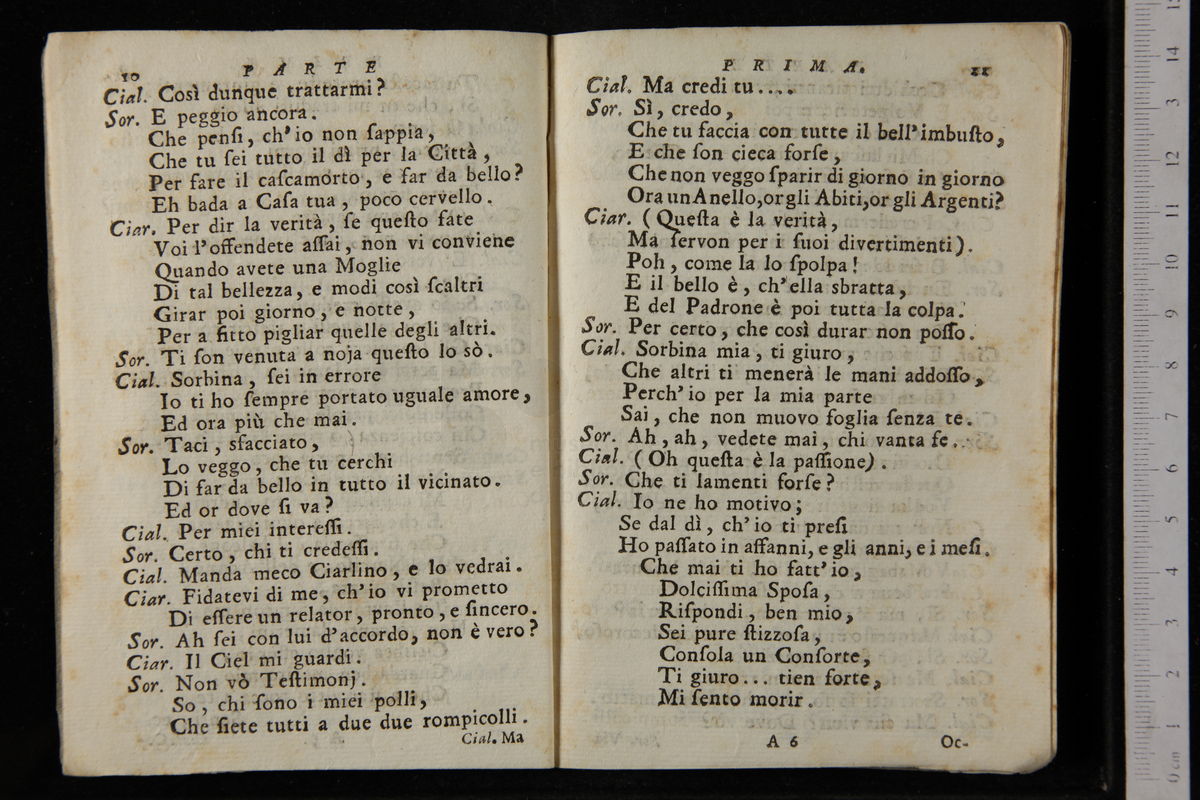 10 PARTE
Cial. Così dunque trattarmi?
Sor. E peggio ancora.
Che penſi, ch'io non ſappia,
Che tu ſei tutto il dì per la Città,
Per fare il caſcamorto, e far da bello?
Eh bada a Caſa tua, poco cervello.
Ciar. Per dir la verità, ſe queſto fate
Voi l'offendete aſſai, non vi conviene
Quando avete una Moglie
Di tal bellezza, e modi così ſcaltri
Girar poi giorno, e notte,
Per a fitto pigliar quelle degli altri.
Sor. Ti ſon venuta a noja queſto lo sò.
Cial. Sorbina, ſei in errore
Io ti ho ſempre portato uguale amore,
Ed ora più che mai.
Sor. Taci, sfacciato,
Lo veggo, che tu cerchi
Di far da bello in tutto il vicinato.
Ed or dove ſi va?
Cial. Per miei intereſſi.
Sor. Certo, chi ti credeſſi.
Cial. Manda meco Ciarlino, e lo vedrai.
Ciar. Fidatevi di me, ch'io vi prometto
Di eſſere un relator, pronto, e ſincero.
Sor. Ah ſei con lui d'accordo, non è vero?
Ciar. Il Ciel mi guardi.
Sor. Non vò Teſtimonj.
So, chi ſono i miei polli,
Che ſiete tutti a due due rompicolli.
Cial. Ma
PRIMA. 11
Cial. Ma credi tu....
Sor. Sì, credo,
Che tu faccia con tutte il bell'imbuſto,
E che ſon cieca forſe,
Che non veggo ſparir di giorno in giorno
Ora un Anello, or gli Abiti, or gli Argenti?
Ciar. (Queſta è la verità,
Ma ſervon per i ſuoi divertimenti).
Poh, come la lo ſpolpa!
E il bello è, ch'ella sbratta,
E del Padrone è poi tutta la colpa.
Sor. Per certo, che così durar non poſſo.
Cial. Sorbina mia, ti giuro,
Che altri ti menerà le mani addoſſo,
Perch'io per la mia parte
Sai, che non muovo foglia ſenza te.
Sor. Ah, ah, vedete mai, chi vanta fe...
Cial. (Oh queſta è la paſſione).
Sor. Che ti lamenti forſe?
Cial. Io ne ho motivo;
Se dal dì, ch'io ti preſi
Ho paſſato in affanni, e gli anni, e i meſi.
Che mai ti ho fatt'io,
Dolciſſima Spoſa,
Riſpondi, ben mio,
Sei pure ſtizzoſa,
Conſola un Conſorte,
Ti giuro... tien forte,
Mi ſento morir.
A 6 Oc-
0 cm 1 2 3 4 5 6 7 8 9 10 11 12 3 14 15